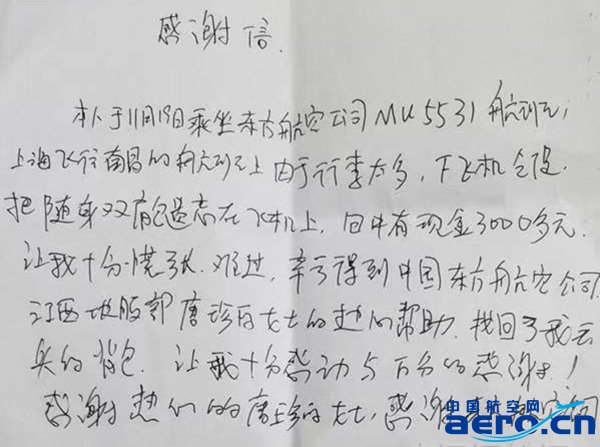 感谢信.
本人于11月19日乘坐东方航空公司MU5531航班,
上海飞往南昌的航班上由于行李太多,下飞机
把随身双肩包遗忘在飞机上,包中有现金3000多元.
让我十分慌张.难过,幸亏得到中国东方航空公司
江西地服部唐珍 女士的 帮助.找回了我丢
失的背包.让我十分感动与万分的感谢!
感谢 们的唐珍 女士,感谢
中国航空网
aero.cn